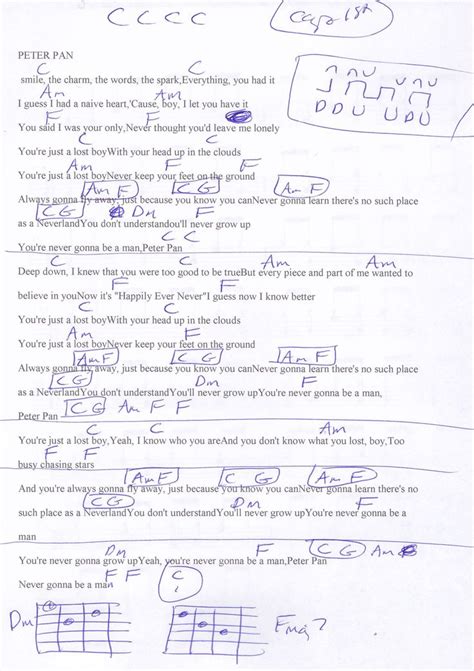 C C C C   Capo 1st
PETER PAN
C   C
smile, the charm, the words, the spark,Everything, you had it
Am   Am
I guess I had a naive heart,'Cause, boy, I let you have it
F   F
You said I was your only,Never thought you'd leave me lonely
C   C
You're just a lost boyWith your head up in the clouds
Am   F   F
You're just a lost boyNever keep your feet on the ground
Am F   C G   Am F
Always gonna fly away, just because you know you canNever gonna learn there's no such place
C G   Dm   F
as a NeverlandYou don't understandou'll never grow up
C C
You're never gonna be a man,Peter Pan
C   C   Am   Am
Deep down, I knew that you were too good to be trueBut every piece and part of me wanted to
F   F
believe in youNow it's "Happily Ever Never"I guess now I know better
C   C
You're just a lost boyWith your head up in the clouds
Am   F
You're just a lost boyNever keep your feet on the ground
Am F   C G   Am F
Always gonna fly away, just because you know you canNever gonna learn there's no such place
C G   Dm   F
as a NeverlandYou don't understandYou'll never grow upYou're never gonna be a man,
Peter Pan   C G   Am F F
C   C   Am
You're just a lost boy,Yeah, I know who you areAnd you don't know what you lost, boy,Too
F F
busy chasing stars
Am F   C G   Am F
And you're always gonna fly away, just because you know you canNever gonna learn there's no
C G   Dm   F
such place as a NeverlandYou don't understandYou'll never grow upYou're never gonna be a
man
Dm   F   C G   Am
You're never gonna grow upYeah, you're never gonna be a man,Peter Pan
F F   C
Never gonna be a man
Dm   Fmaj?
∩ ∩ U   ∩ U
D D U   U D U